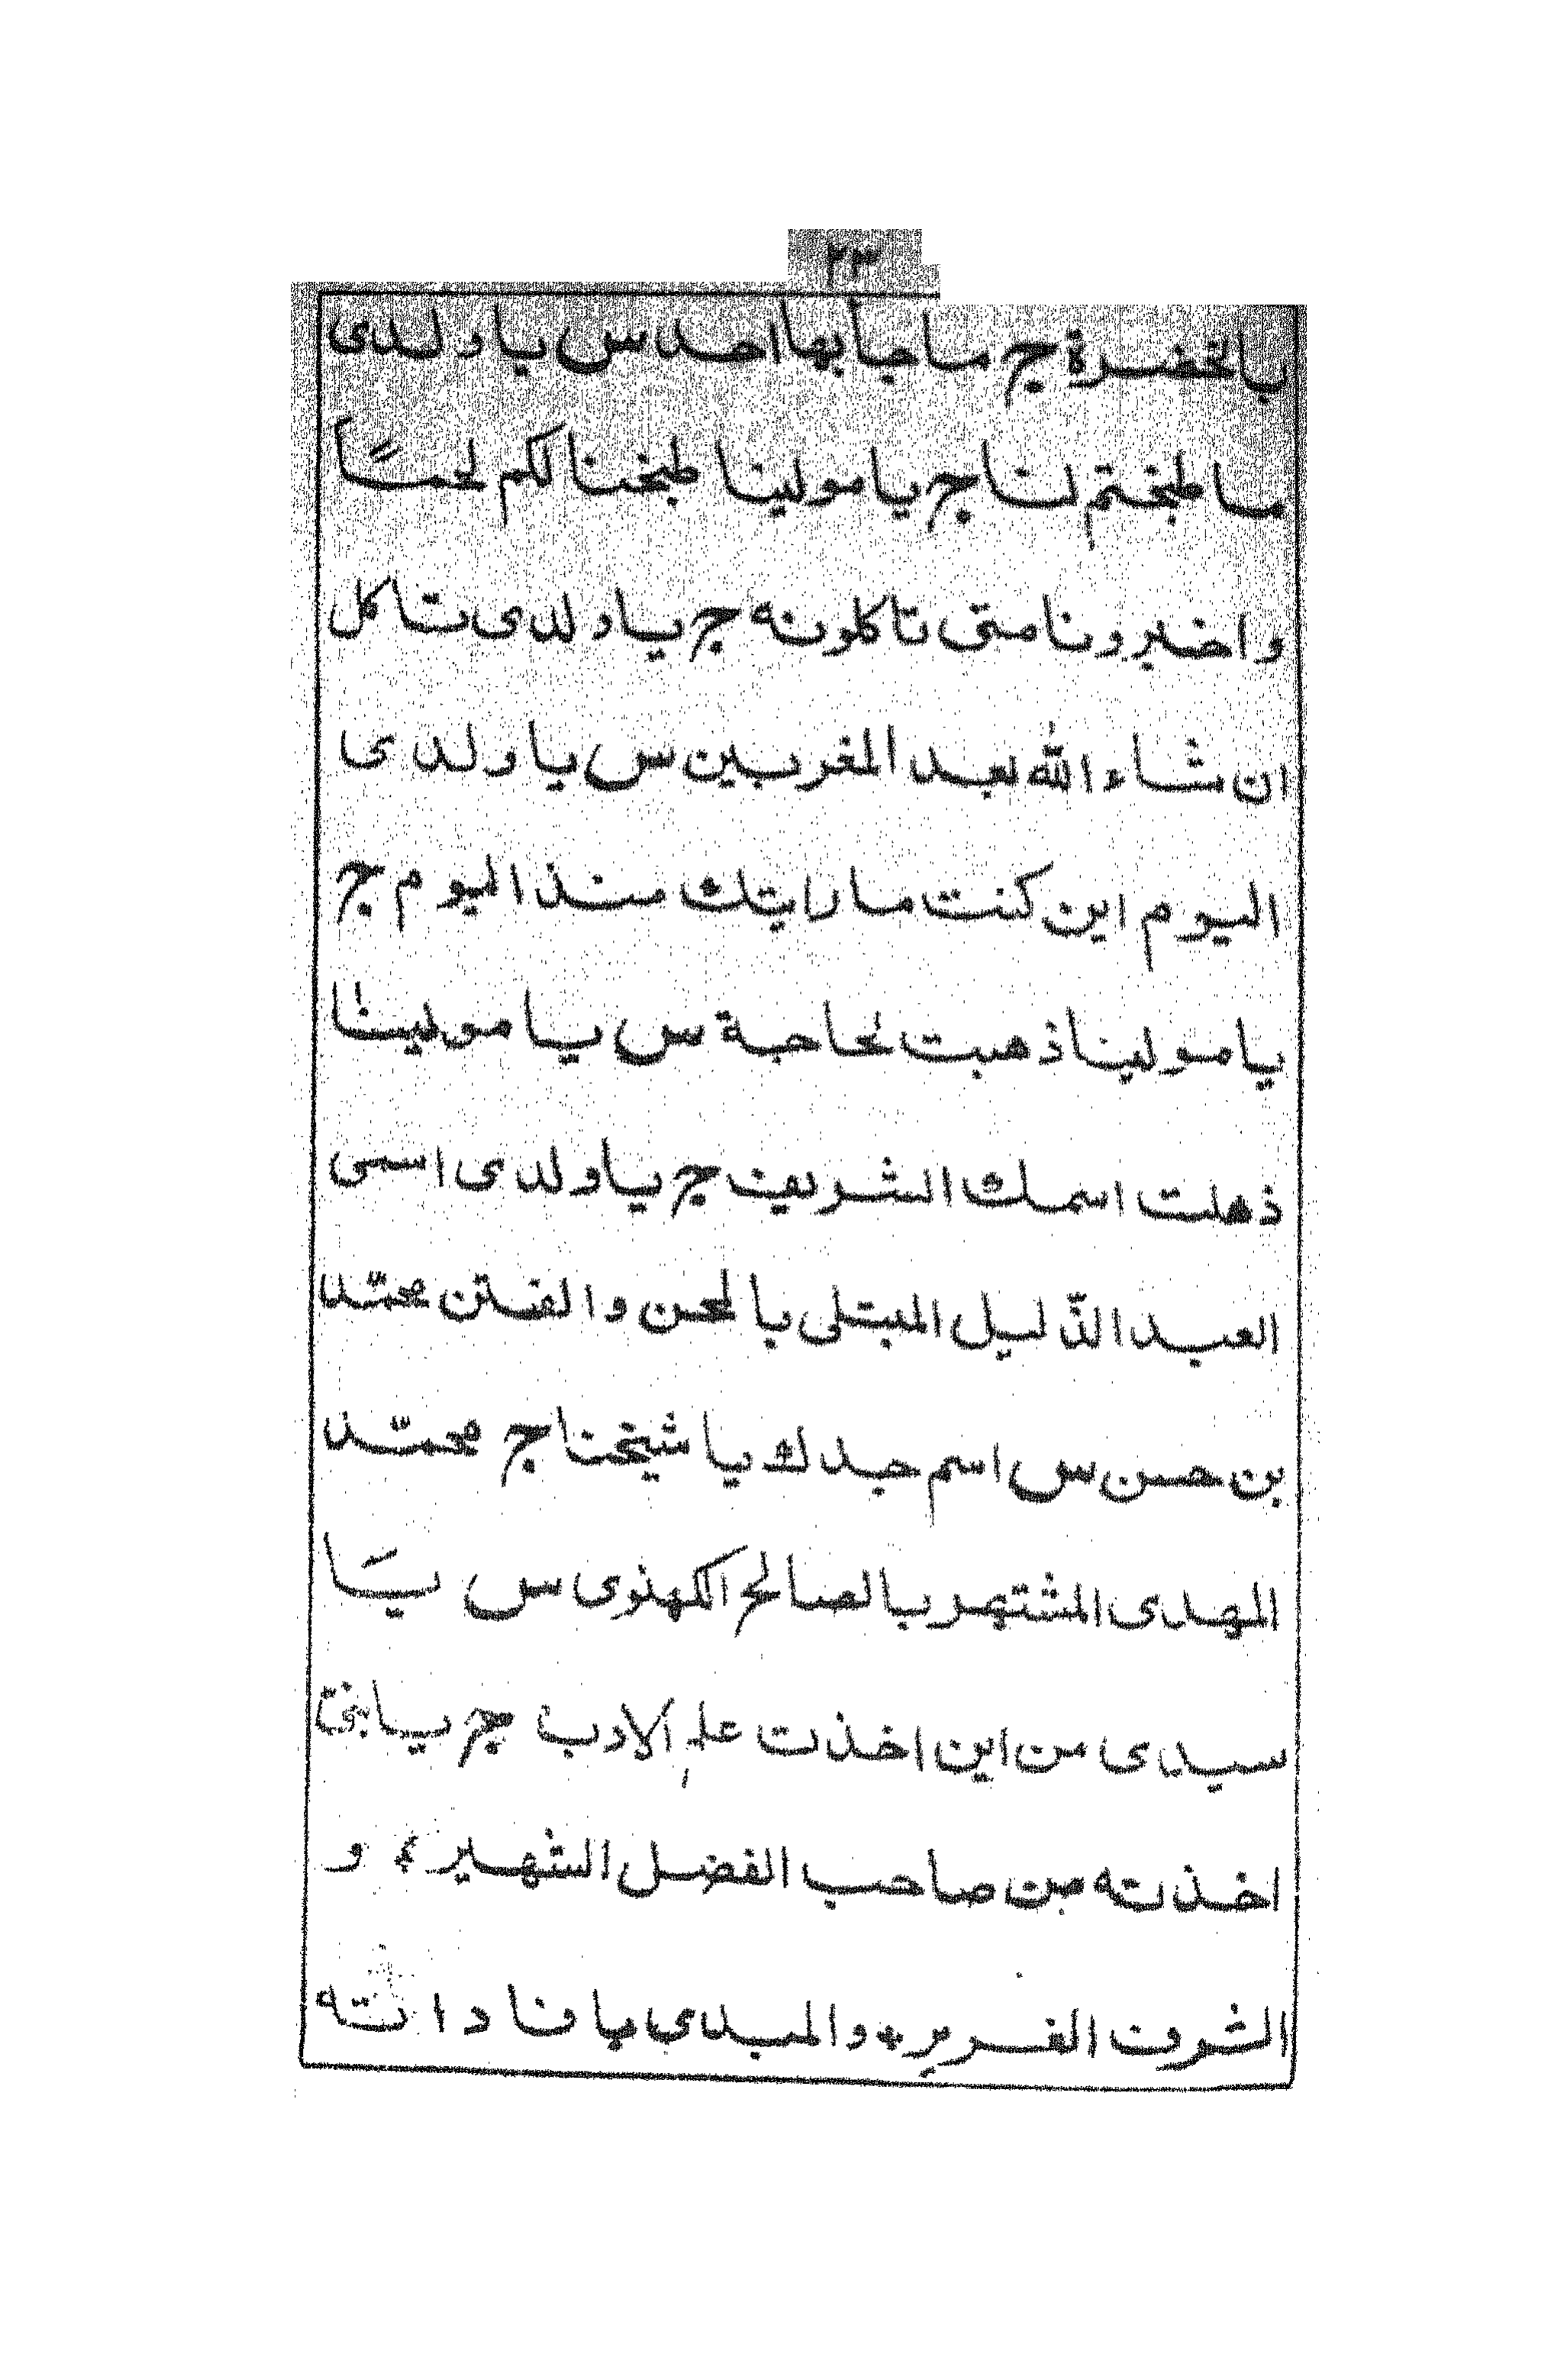 ٢٣
بالخضرة ج ما جأ بها احد س يا ولدى
ما طبختم لنا ج يا مولينا طبخنا لكم لحمًا
و اخبرونا متى تاكلونه ج يا ولدى تاكل
ان شاء الله بعد المغربين س يا ولدى
اليوم اين كنت ما رايتك منذ اليوم ج
يا مولينا ذهبت لحاجة س يا مولينا
ذهلت اسمك الشريف ج يا ولدى اسمى
العبد الذّليل المبتلى بالمحن و الفتن محمّد
بن حسن س اسم جدك يا شيخنا ج محمّد
المهدى المشتهر بالصالح الكهنوى س يَا
سيدى من اين اخذت علم الادب ج يا بنىّ
اخذته من صاحب الفضل الشهير ؞ و
الشرف الغرير * و المبدى بافاداته